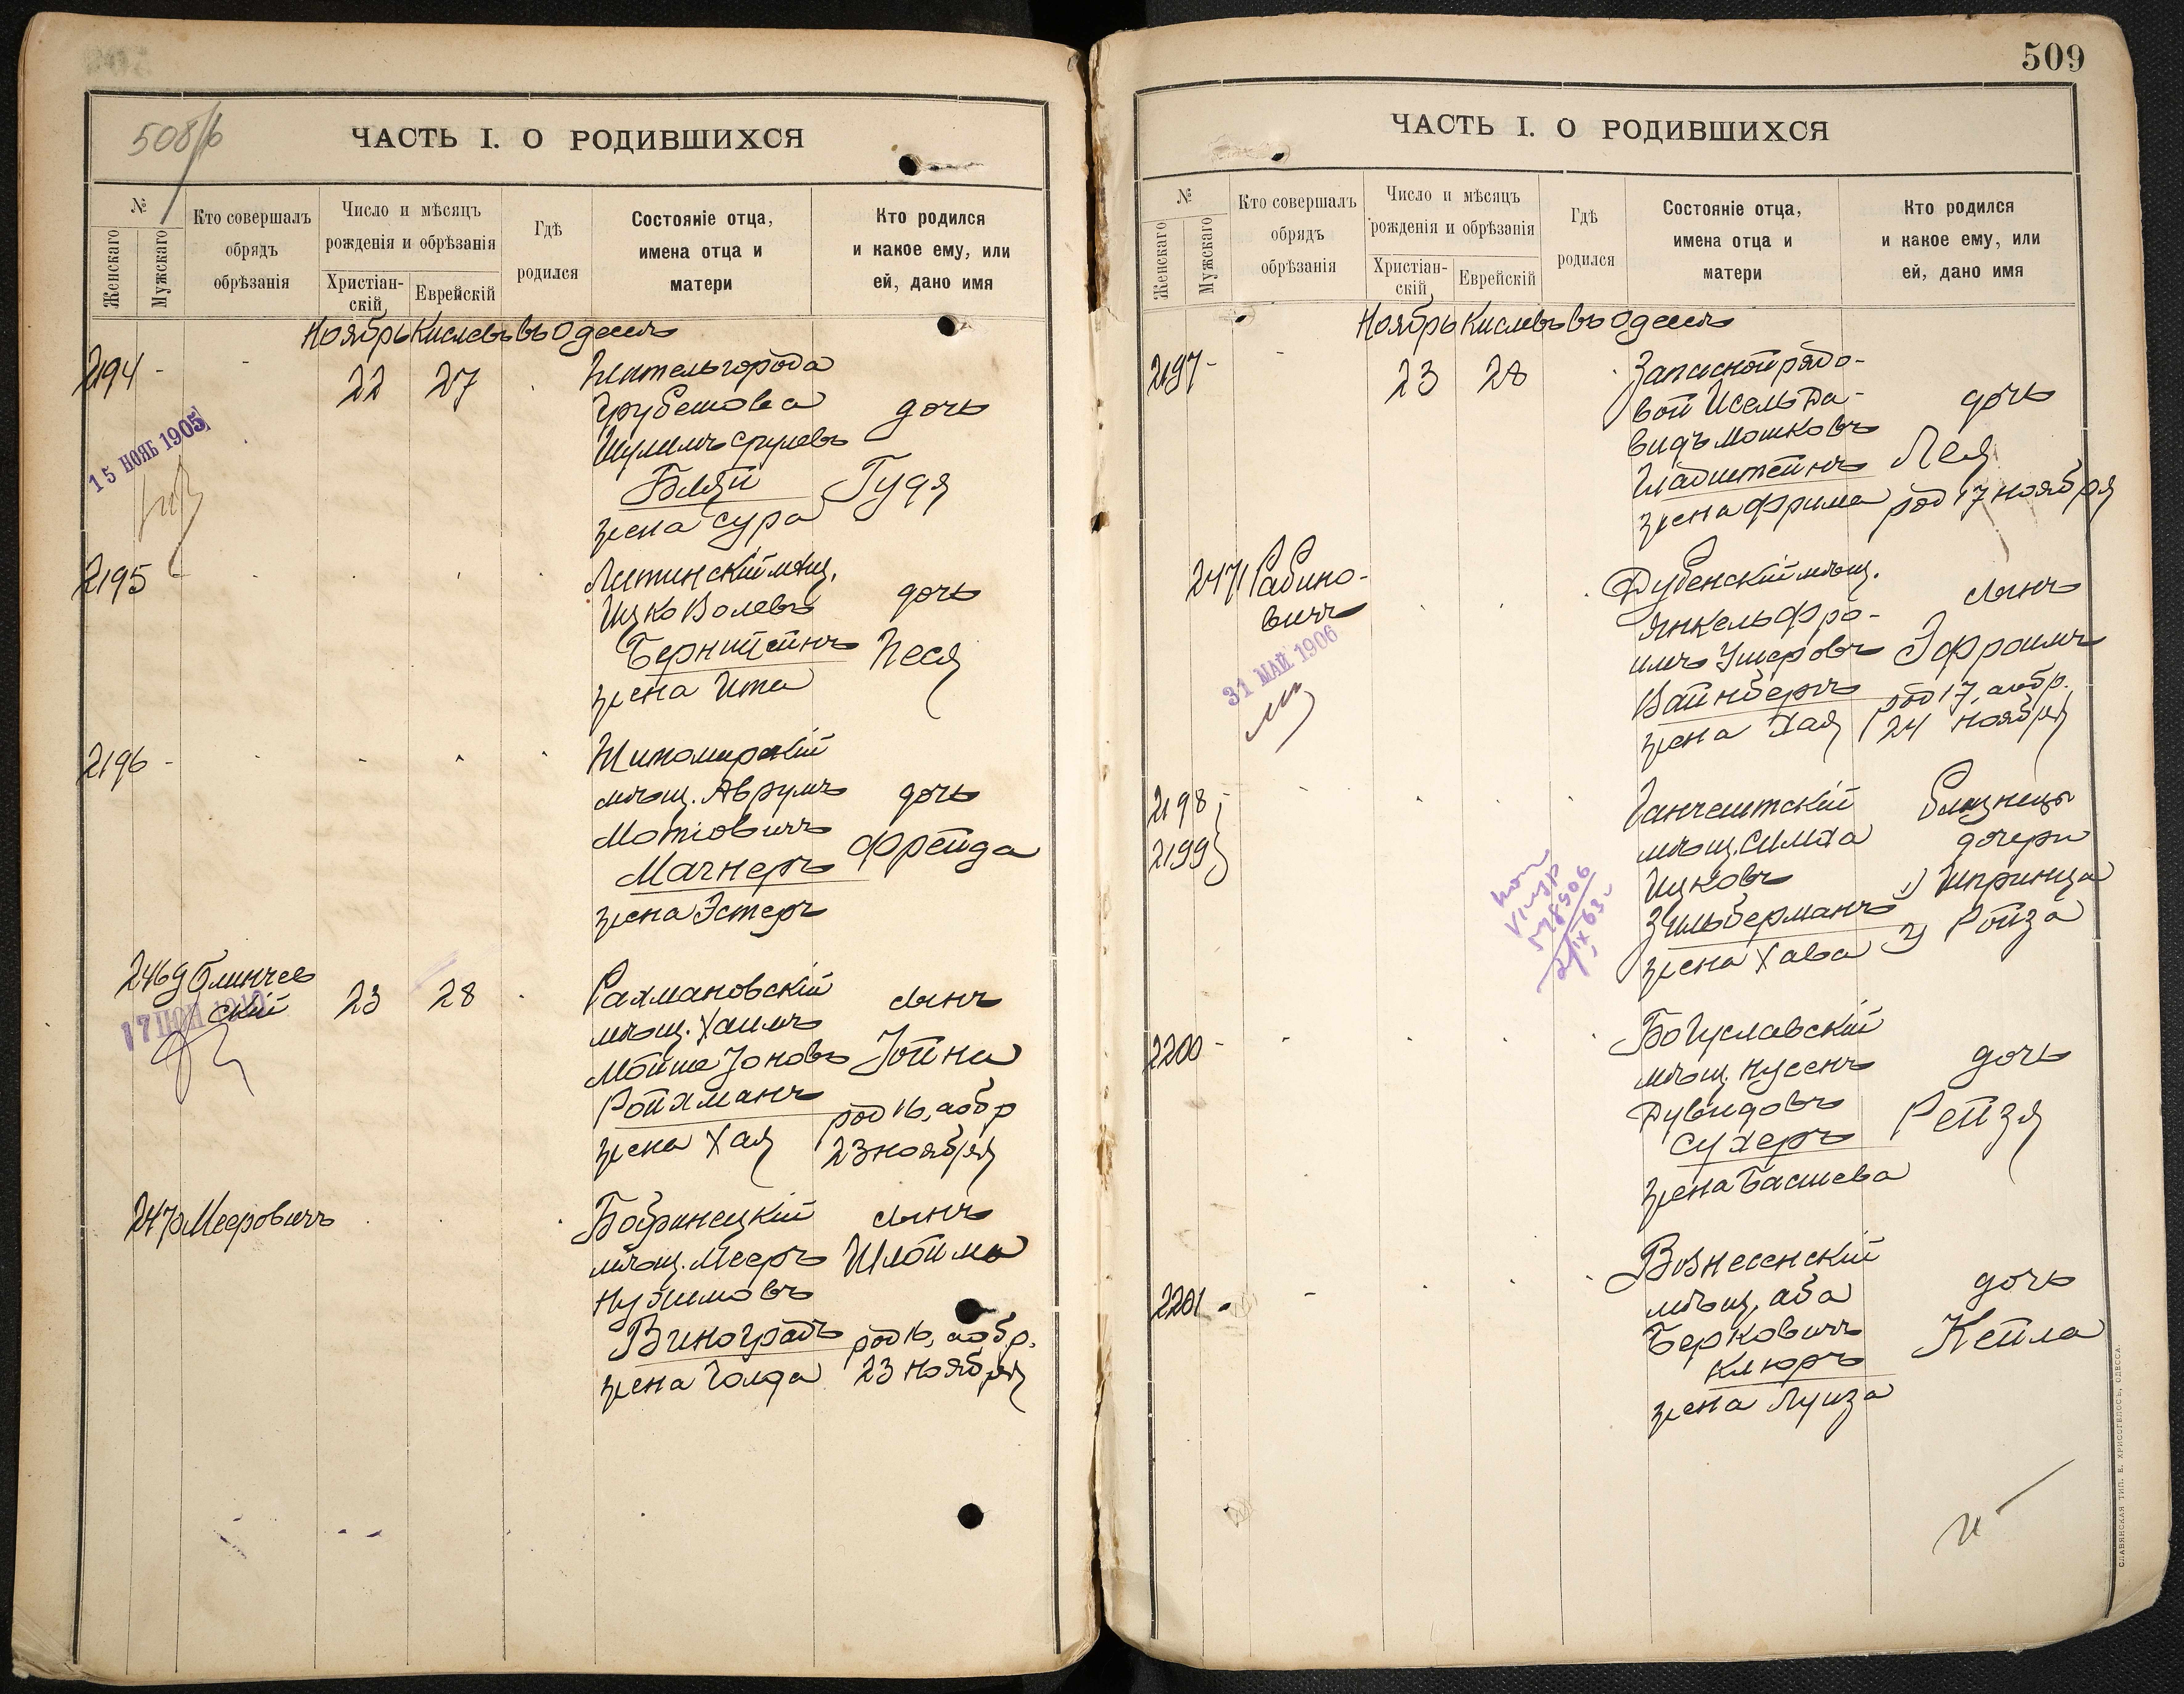 508/б
ЧАСТЬ I. О РОДИВШИХСЯ
№
Женскаго
Мужскаго
Кто совершалъ
обрядъ
обрѣзанія
Число и мѣсяцъ
рожденія и обрѣзанія
Христіан-
скій
Еврейскій
Гдѣ
родился
Состояніе отца,
имена отца и
матери
Кто родился
и какое ему, или
ей, дано имя
Ноябрь Кислевъ въ Одессѣ
2194 - - 22 27
Житель города
Грубешова
Шулимъ Срулевъ
Бляй
жена Сура
дочь
Гудя
15 НОЯБ 1905
2195
Литинскій мѣщ.
Ицко Волевъ
Бернштейнъ
жена Ита
дочь
Песя
2196 -
Житомирскій
мѣщ. Аврумъ
Мотіовичъ
Магнеръ
жена Эстеръ
дочь
Фрейда
2469 Блинчев
ский 23 28
Рахмановскій
мѣщ. Хаимъ
Мойше Іоновъ
Ройхманъ
жена Хая
сынъ
Іойна
род 16, аобр
23 ноября
2470 Мееровичъ
Бобринецкій
мѣщ. Мееръ
Нухимовъ
Виноградъ
жена Голда
сынъ
Шлойма
род 16, аобр.
23 ноября
509
ЧАСТЬ I. О РОДИВШИХСЯ
№
Женскаго
Мужскаго
Кто совершалъ
обрядъ
обрѣзанія
Число и мѣсяцъ
рожденія и обрѣзанія
Христіан-
скій
Еврейскій
Гдѣ
родился
Состояніе отца,
имена отца и
матери
Кто родился
и какое ему, или
ей, дано имя
Ноябрь Кислевъ въ Одессѣ
2197 - - 23 28
Запасной рядо-
вой Исель Да-
видъ Мошковъ
Гладштейнъ
жена Фрима
дочь
Лея
род 17 ноября
2471 Рабино-
вичъ
31 МАЙ 1906
Дубенскій мѣщ.
Янкель Фро-
имъ Умеровъ
Вайнберъ
жена Хая
сынъ
Эфроимъ
род 17, аобр.
24 ноября
2198
2199
Ганчештскій
мѣщ. Симха
Ицковъ
Зильберманъ
жена Хава
близнецы
дочери
1) Шпринца
2) Ройза
2200 -
Богуславскій
мѣщ. Нусенъ
Дувидовъ
Сухеръ
жена Басшева
дочь
Рейзя
2201 -
Вознесенскій
мѣщ. Аба
Берковичъ
Клюръ
жена Луиза
дочь
Кейла
СЛАВЯНСКАЯ ТИП. Е. ХРИСОГЕЛОСЪ, ОДЕССА.